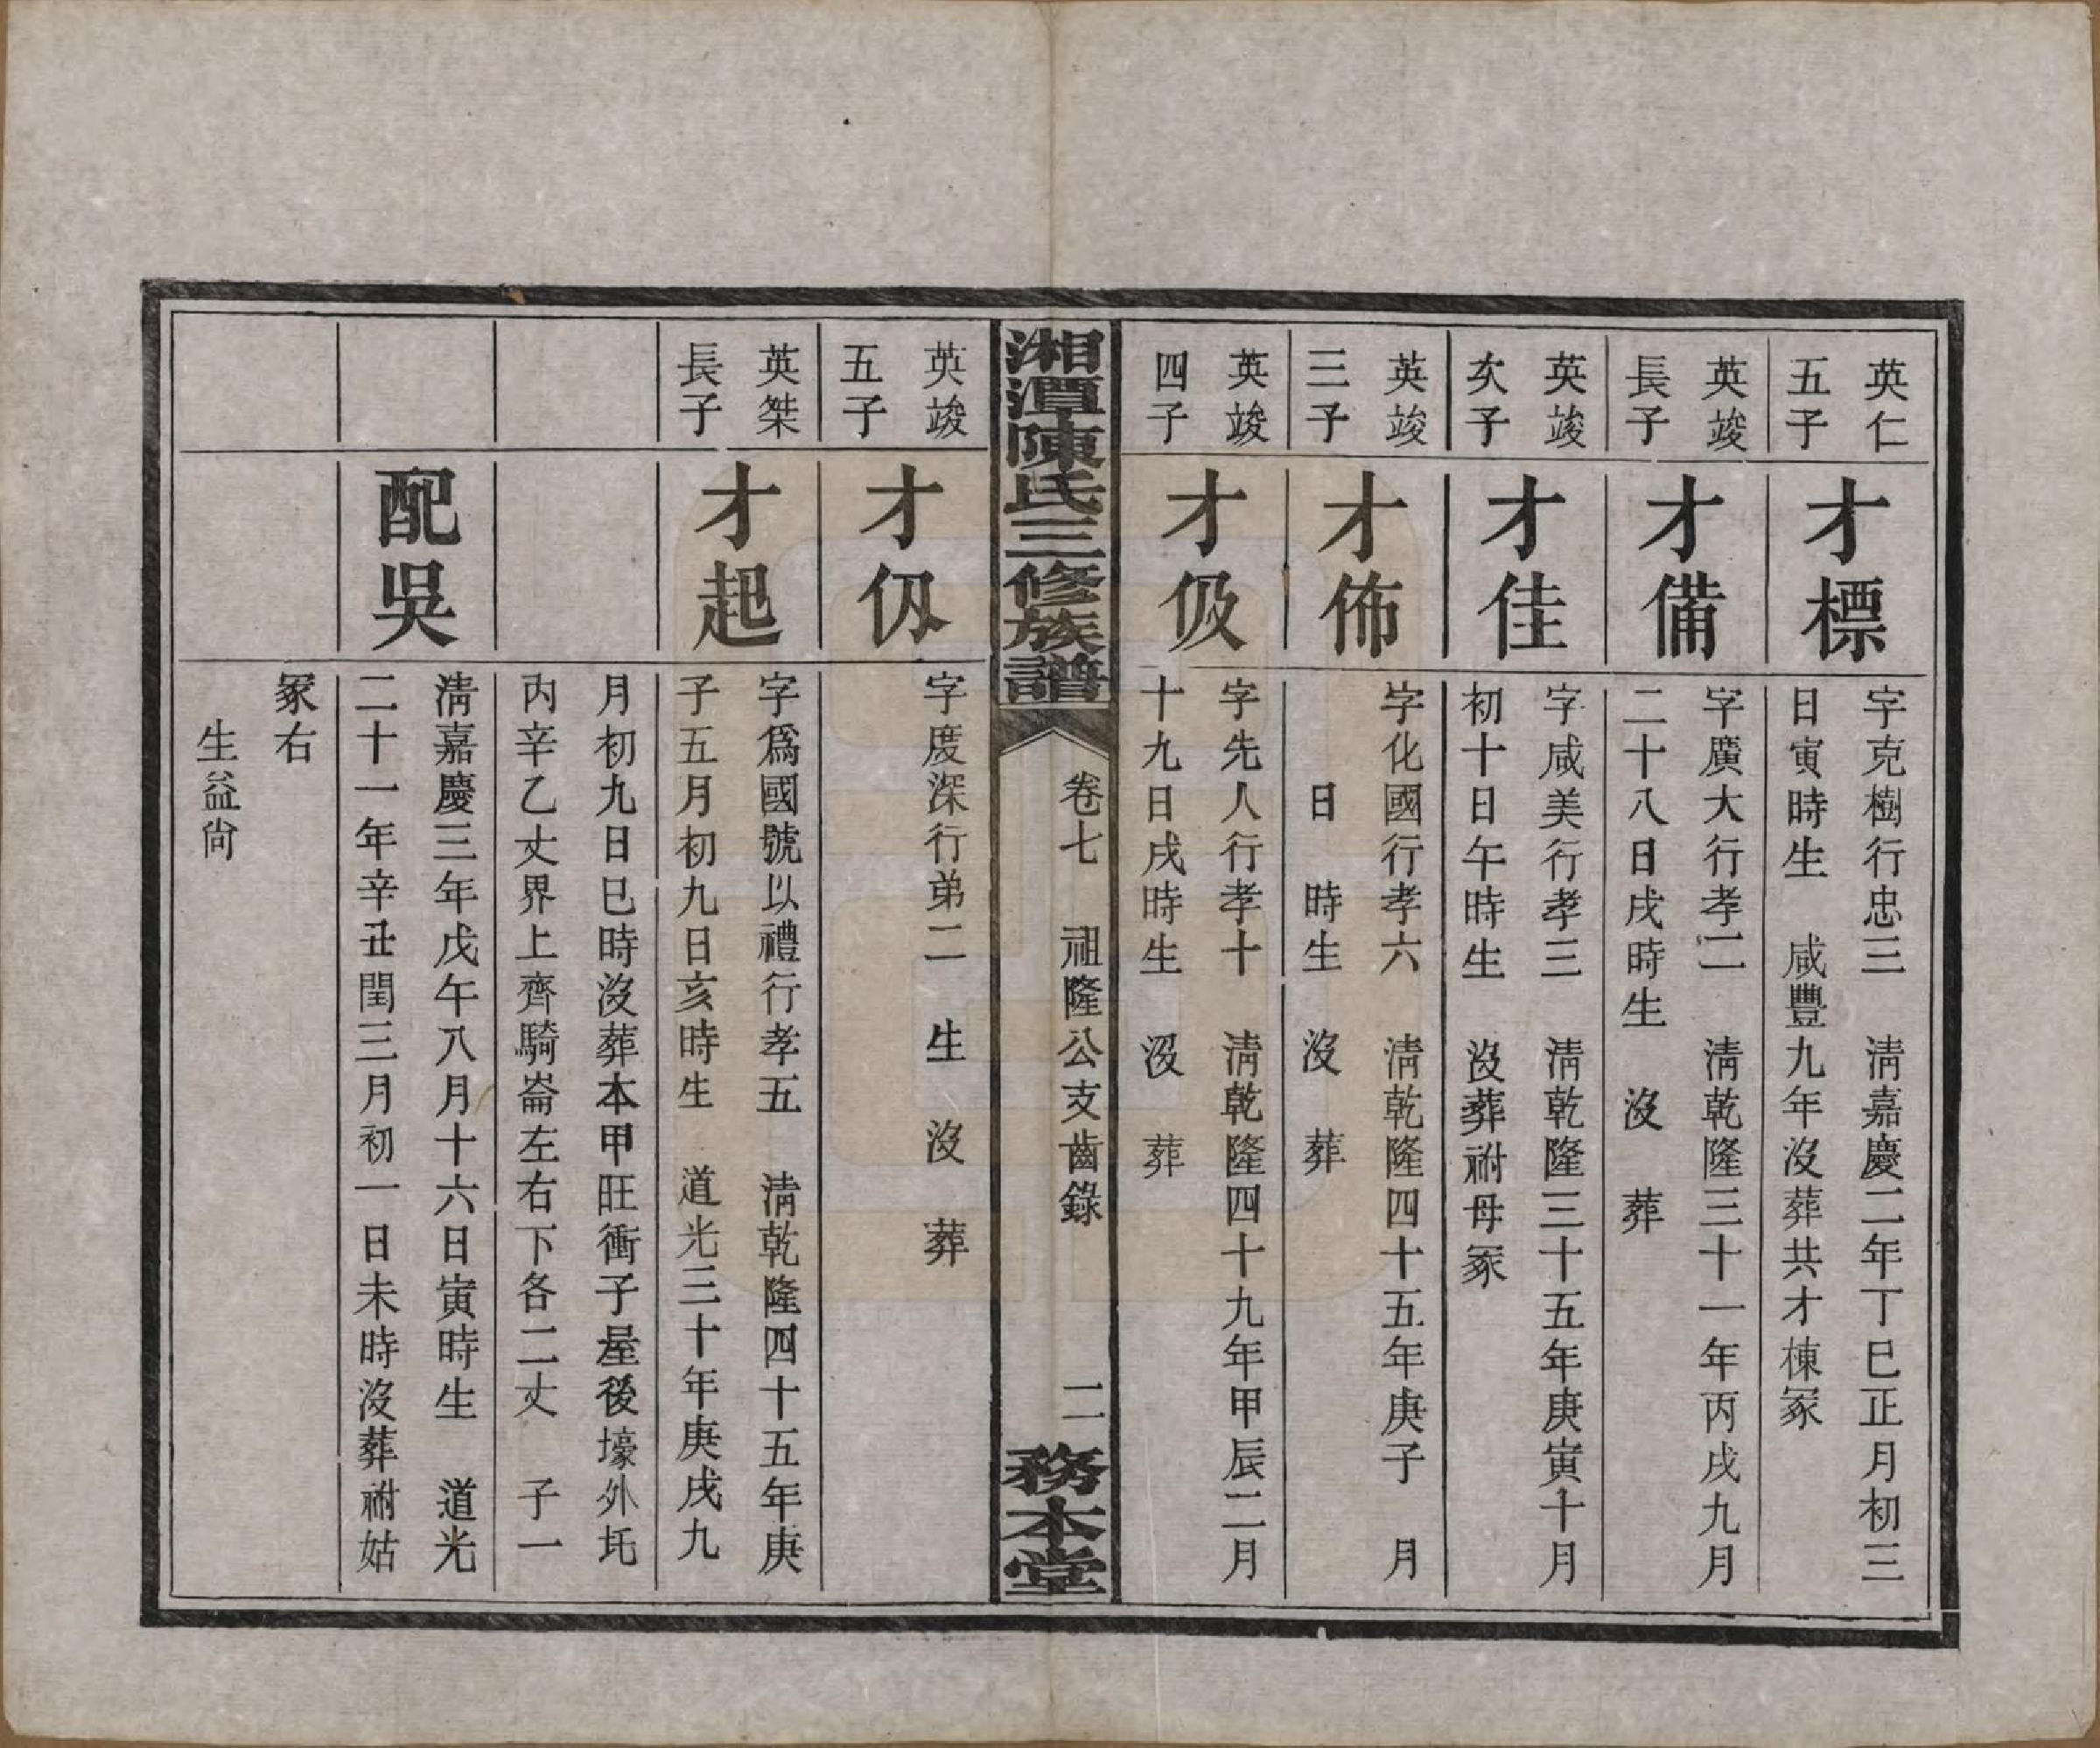 英仁
五子
才標
字克樹行忠三　淸嘉慶二年丁巳正月初三
日寅時生　咸豐九年沒葬共才棟冢
英竣
長子
才備
字廣大行孝二　淸乾隆三十一年丙戌九月
二十八日戌時生　沒　葬
英竣
次子
才佳
字咸美行孝三　淸乾隆三十五年庚寅十月
初十日午時生　沒葬祔母冢
英竣
三子
才佈
字化國行孝六　淸乾隆四十五年庚子　月
　　日　時生　沒　葬
英竣
四子
才伋
字先人行孝十　淸乾隆四十九年甲辰二月
十九日戌時生　沒　葬
湘潭陳氏三修族譜
卷七　祖隆公支齒錄
二
務本堂
英竣
五子
才仭
字度深行弟二　生　沒　葬
英桀
長子
才起
字爲國號以禮行孝五　淸乾隆四十五年庚
子五月初九日亥時生　道光三十年庚戌九
月初九日巳時沒葬本甲旺衝子屋後壕外圫
丙辛乙丈界上齊騎崙左右下各二丈　子一
配吳
淸嘉慶三年戊午八月十六日寅時生　道光
二十一年辛丑閏三月初一日未時沒葬祔姑
冢右
生益尙